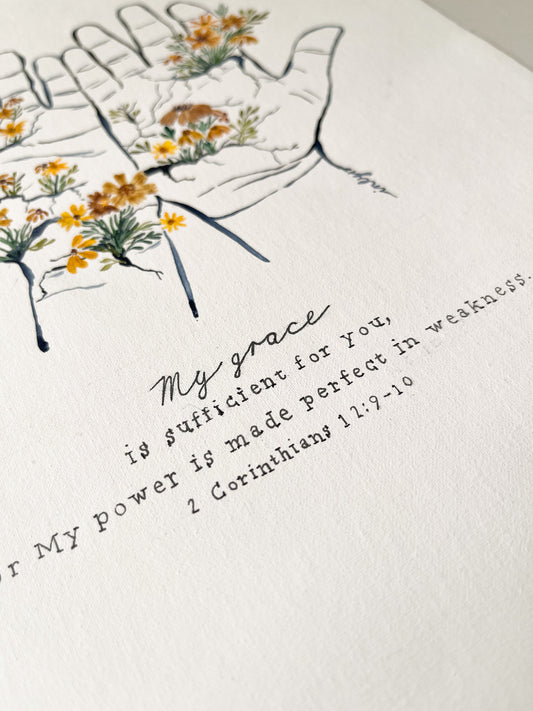 My grace
is sufficient for you,
for My power is made perfect in weakness.
2 Corinthians 12:9-10